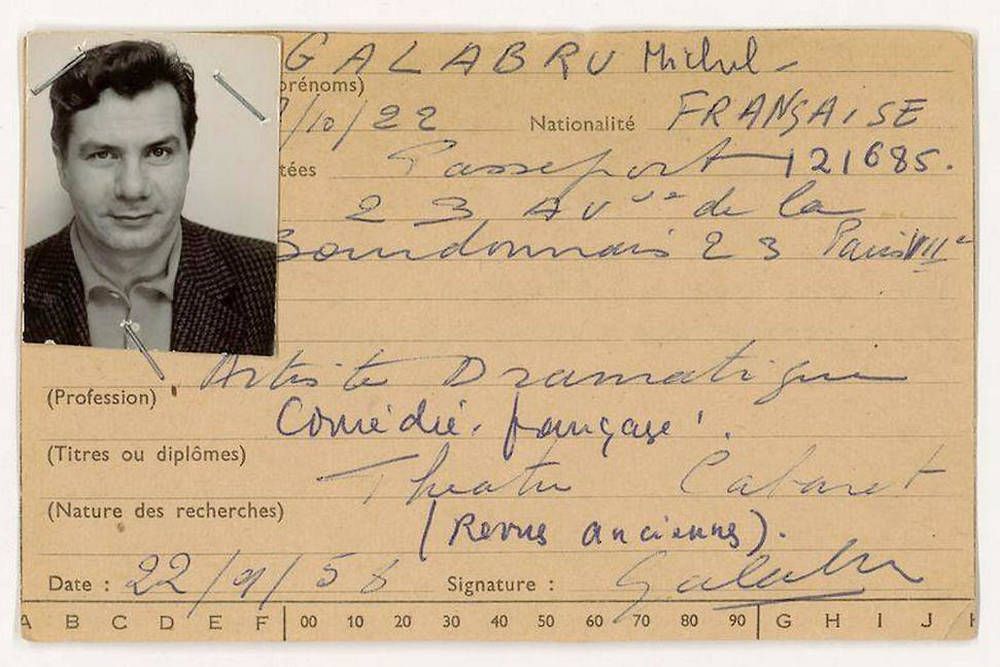 GALABRU Michel -
prénoms)
/10/22 Nationalité FRANÇAISE
tées Passeport 121685.
23 Avue de la
Bourdonnais 23 Paris VIIe
Artiste Dramatique
(Profession)
Comédie. française.
(Titres ou diplômes)
Theatre Cabaret
(Nature des recherches)
(Revues anciennes).
Date : 22/9/56 Signature : Galabru
A B C D E F 00 10 20 30 40 50 60 70 80 90 G H I J K